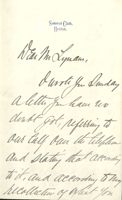 Somerset Club,
Boston.
Dear Mr Lyman,
I wrote you Sunday
a letter you have no
doubt got, referring to
our talk over the telephone
and stating that according
to it, and according to my
recollection of what you